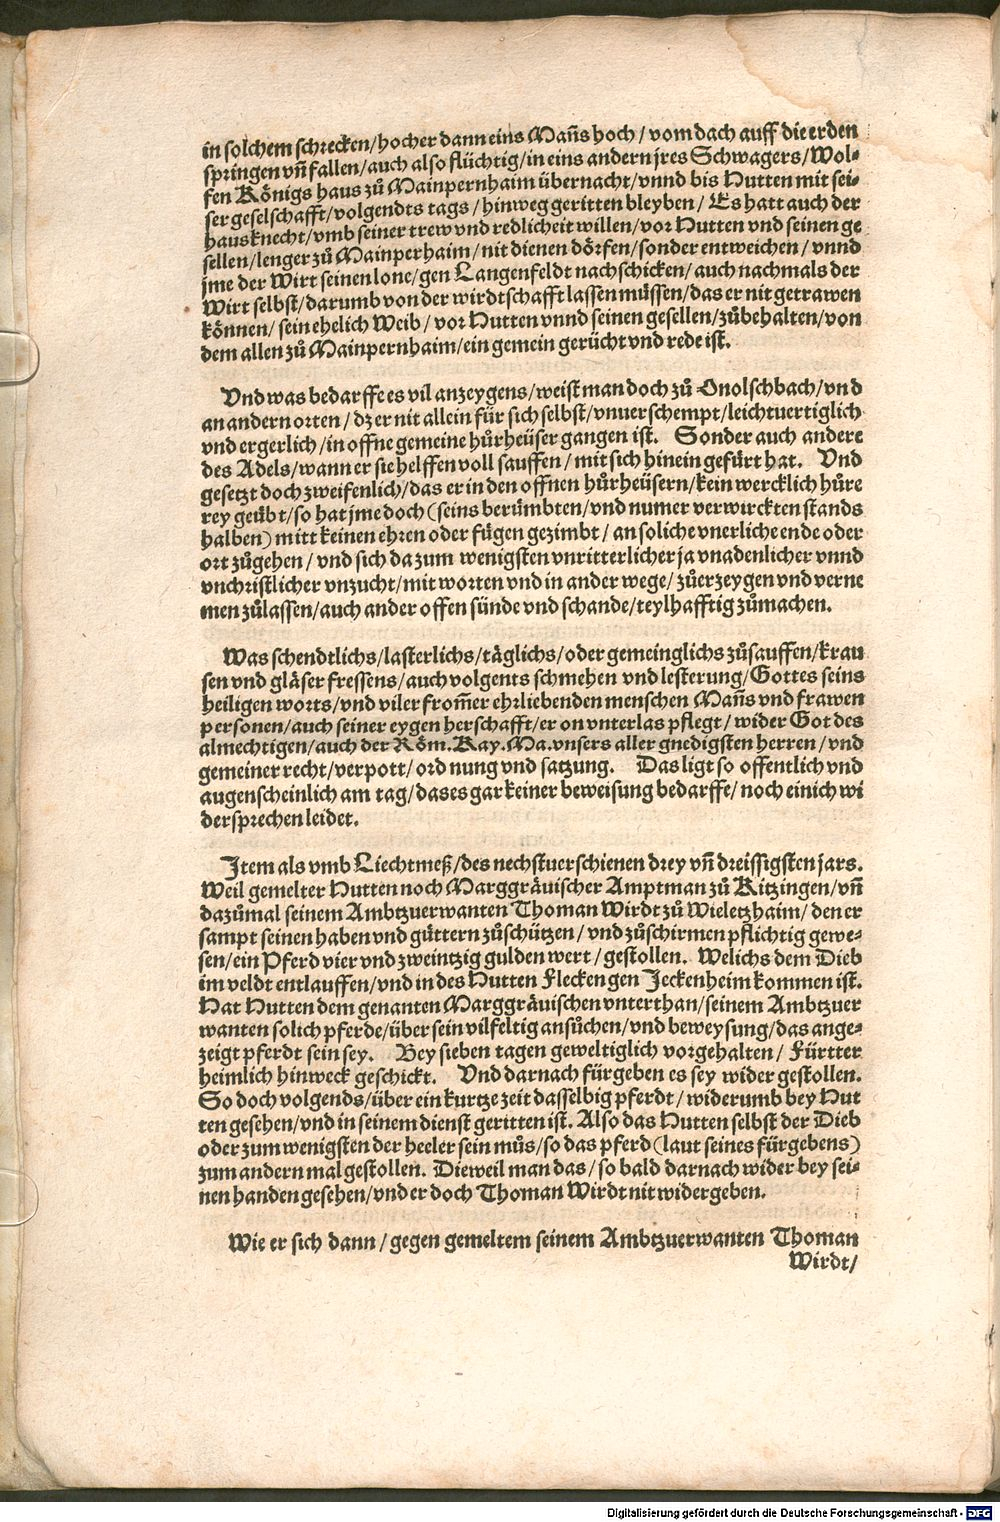 in solchem schrecken/hocher dann eins Mañs hoch/ vom dach auff die erden
springen vñ fallen/auch also flüchtig/in eins andern jres Schwagers/Wol-
fen Königs haus zů Mainpernhaim übernacht/vnnd bis Hutten mit sei-
ser geselschafft/volgendts tags/ hinweg geritten bleyben/ Es hatt auch der
hausknecht/vmb seiner trew vnd redlicheit willen/vor Hutten vnd seinen ge
sellen/lenger zů Mainperhaim/nit dienen dörfen/sonder entweichen/ vnnd
jme der Wirt seinen lone/gen Langenfeldt nach schicken/auch nachmals der
Wirt selbst/darumb von der wirdtschafft lassen müssen/das er nit getrawen
können/ sein ehelich Weib/ vor Hutten vnnd seinen gesellen/zůbehalten/von
dem allen zů Mainpernhaim/ein gemein gerücht vnd rede ist.
Vnd was bedarffe es vil anzeygens/weist man doch zů Onolschbach/vnd
an andern orten/dz er nit allein für sich selbst/vnuerschempt/leichtuertiglich
vnd ergerlich/in offne gemeine hůrheüser gangen ist. Sonder auch andere
des Adels/wann er sie helffen voll sauffen/ mit sich hinein gefürt hat. Vnd
gesetzt doch zweifenlich/das er in den offnen hůrheüsern/kein wercklich hůre
rey geübt/so hat jme doch (seins berümbten/vnd numer verwirckten stands
halben) mitt keinen ehren oder fügen gezimbt/ an soliche vnerliche ende oder
ort zůgehen/ vnd sich da zum wenigsten vnritterlicher ja vnadenlicher vnnd
vnchristlicher vnzucht/mit worten vnd in ander wege/zůerzeygen vnd verne
men zůlassen/auch ander offen sünde vnd schande/teylhafftig zůmachen.
Was schendtlichs/lasterlichs/täglichs/oder gemeinglichs zůsauffen/krau
sen vnd gläser fressens/auch volgents schmehen vnd lesterung/Gottes seins
heiligen worts/vnd viler from̃er ehrliebenden menschen Mañs vnd frawen
personen/auch seiner eygen herschafft/er on vnterlas pflegt/ wider Got des
almechtigen/auch der Röm. Kay. Ma. vnsers aller gnedigsten herren/vnd
gemeiner recht/verpott/ord nung vnd satzung. Das ligt so offentlich vnd
augenscheinlich am tag/das es gar keiner beweisung bedarffe/noch einich wi
dersprechen leidet.
Item als vmb Liechtmeß/des nechstuerschienen drey vñ dreissigsten jars.
Weil gemelter Hutten noch Marggräuischer Amptman zů Kitzingen/vñ
dazůmal seinem Ambtzuerwanten Thoman Wirdt zů Wieletzhaim/den er
sampt seinen haben vnd güttern zůschützen/vnd zůschirmen pflichtig gewe-
sen/ein Pferd vier vnd zweintzig gulden wert/ gestollen. Welichs dem Dieb
im veldt entlauffen/vnd in des Hutten Flecken gen Jeckenheim kommen ist.
Hat Hutten dem genanten Marggräuischen vnterthan/seinem Ambtzuer
wanten solich pferde/über sein vilfeltig ansůchen/vnd beweysung/das ange-
zeigt pferdt sein sey. Bey sieben tagen geweltiglich vorgehalten/ Fürtter
heimlich hinweck geschickt. Vnd darnach fürgeben es sey wider gestollen.
So doch volgends/über ein kurtze zeit dasselbig pferdt/widerumb bey Hut
ten gesehen/vnd in seinem dienst geritten ist. Also das Hutten selbst der Dieb
oder zum wenigsten der heeler sein můs/so das pferd (laut seines fürgebens)
zum andern mal gestollen. Dieweil man das/so bald darnach wider bey sei-
nen handen gesehen/vnd er doch Thoman Wirdt nit widergeben.
Wie er sich dann/gegen gemeltem seinem Ambtzuerwanten Thoman
Wirdt/
Digitalisierung gefördert durch die Deutsche Forschungsgemeinschaft - DFG